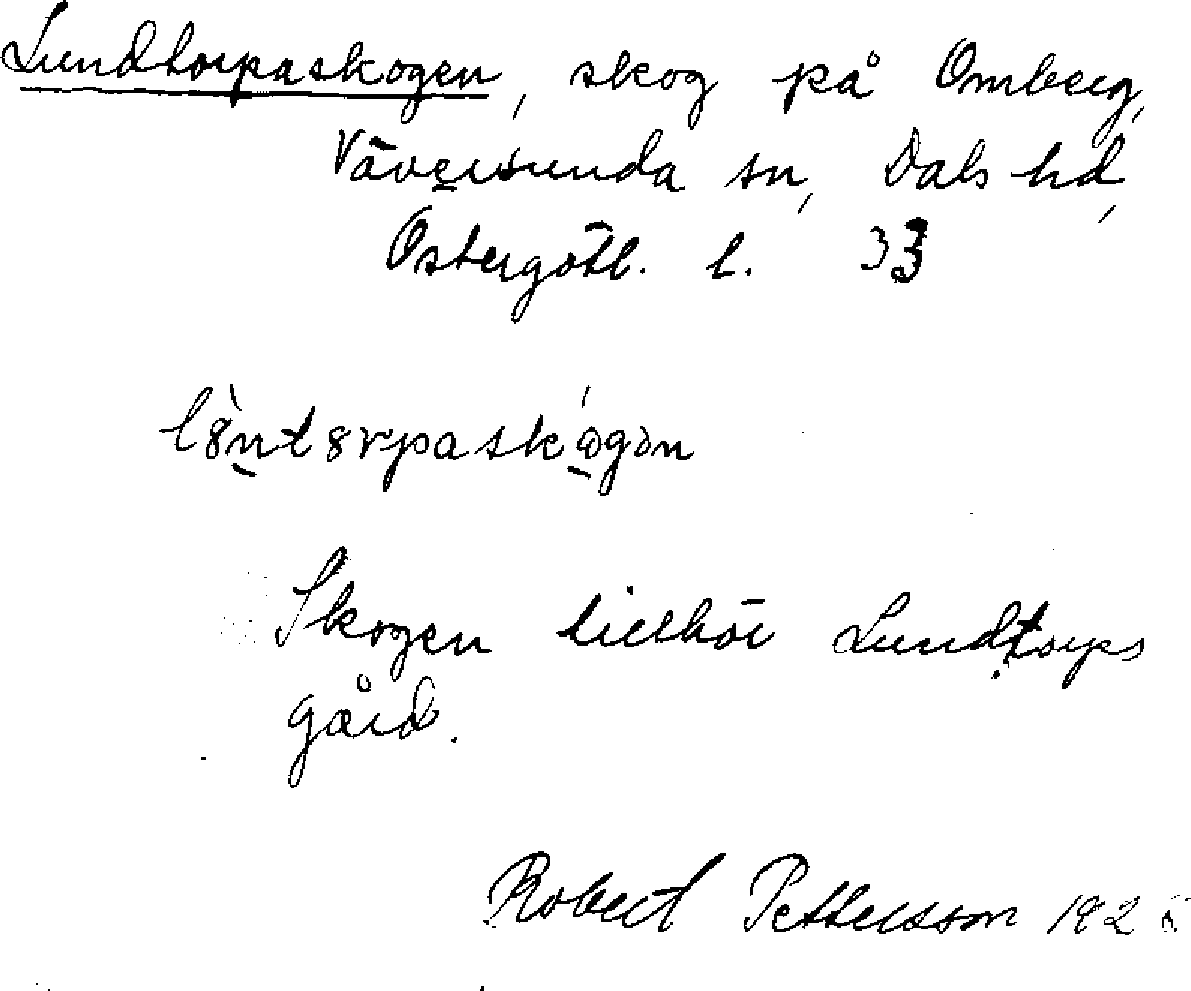 Lundtorpaskogen, skog på Omberg,
Väversunda sn, Dals hd,
Östergötl. l. 33
Skogen tillhör Lundtorps
gård.
Robert Pettersson